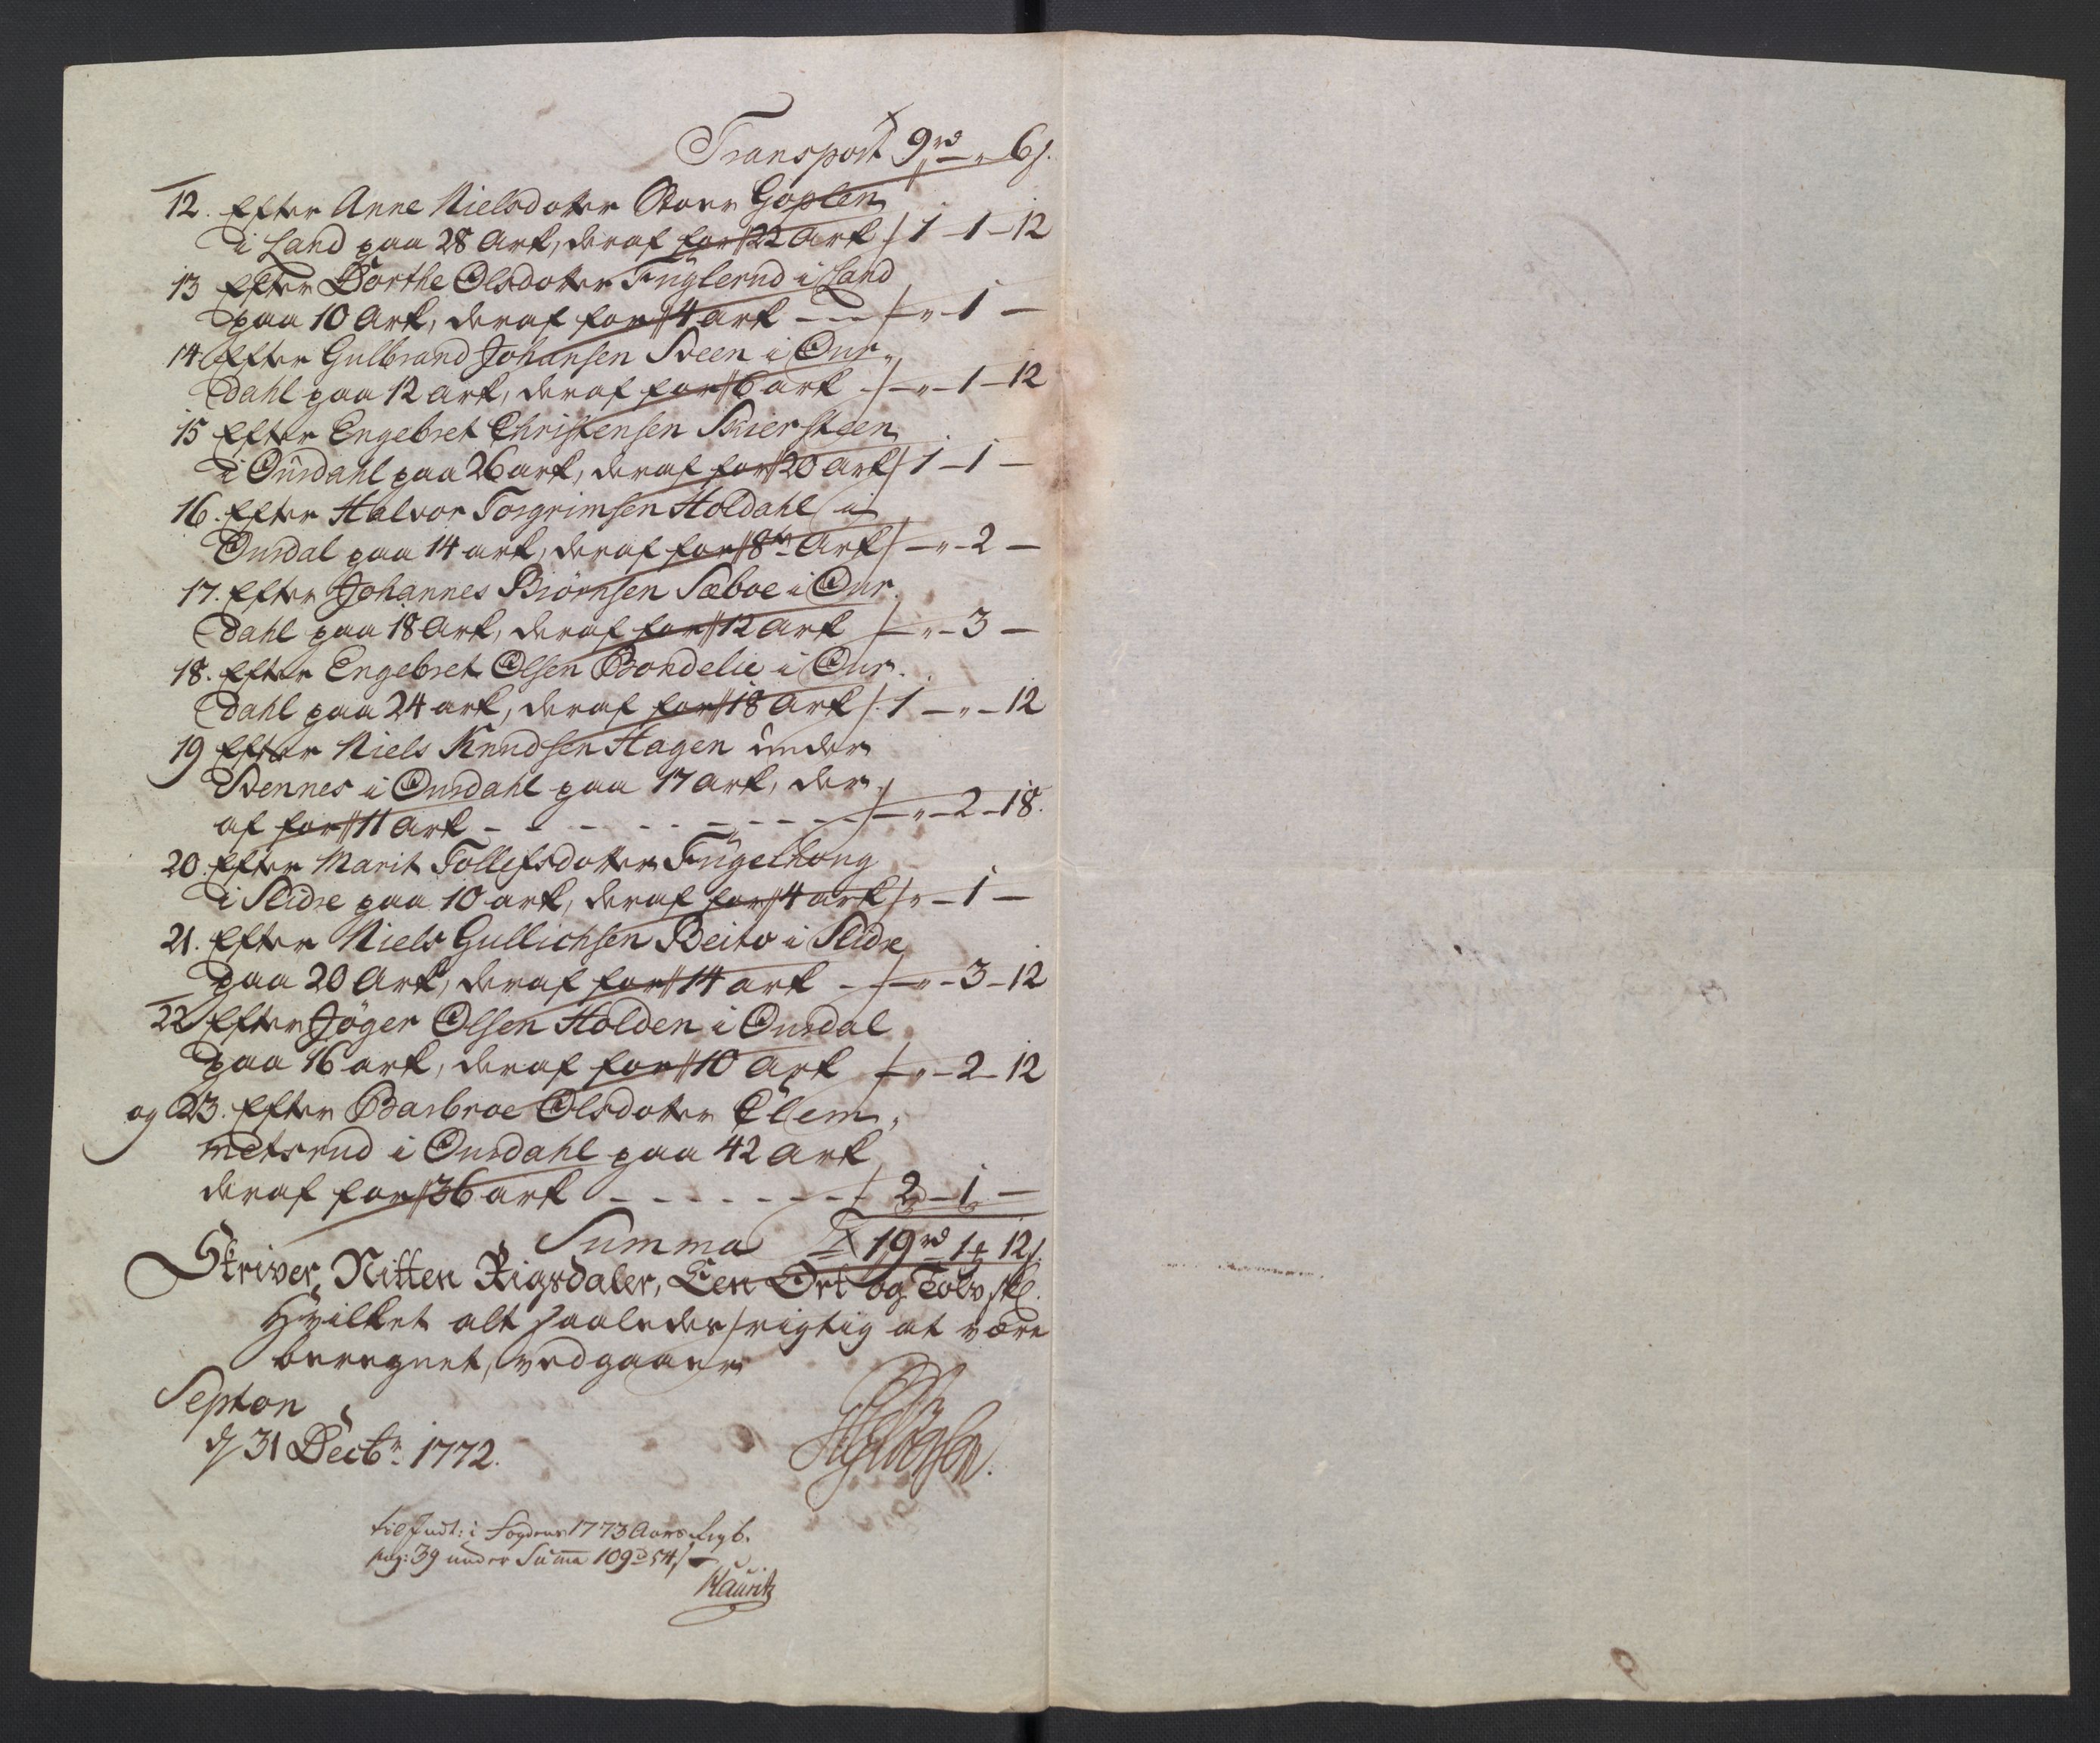 Transport 9rd „ 6s.
12. Efter Anne Nielsdatter Store Goplen
i Land paa 28 Ark, deraf for 22 Ark 1 - 1 - 12
13 Efter Dorthe Olsdatter Fuglerud i Land
paa 10 Ark, deraf for 4 Ark - - - „ - 1 -
14 Efter Gulbrand Johansen Sveen i Our-
dahl paa 12 Ark, deraf for 6 ark - „ - 1 - 12
15 Efter Engebret Christensen Skiersteen
i Ourdahl paa 26 ark, deraf for 20 Ark 1 - 1 -
16. Efter Halvor Torgrimsen Holdahl i
Ourdal paa 14 ark, deraf for 8te Ark - „ - 2 -
17. Efter Johannes Biörnsen Sæboe i Our-
dahl paa 18 Ark, deraf for 12 Ark - „ - 3 -
18. Efter Engebret Olsen Bondelie i Our-
dahl paa 24 ark, deraf for 18 Ark 1 - „ - 12
19 Efter Niels Knudsen Hagen under
Svennes i Ourdahl paa 17 Ark, der-
af for 11 Ark - - - - - - - - „ - 2 - 18.
20. Efter Marit Tollefsdatter Fugelhoug
i Slidre paa 10 ark, deraf for 4 ark „ - 1 -
21. Efter Niels Gullichsen Beito i Slidre
paa 20 Ark, deraf for 14 ark - - „ - 3 - 12
22 Efter Jöger Olsen Holden i Ourdal
paa 16 ark, deraf for 10 Ark „ - 2 - 12
og 23. Efter Barbroe Olsdatter Clem-
metsrud i Ourdahl paa 42 Ark
deraf for 36 ark - - - - - - - 2 - 1 -
Summa 19rd 1 12s.
Skriver, Nitten Rigsdaler, Een Ort og Tolv skl.
Hvilket alt saaledes rigtig at være
beregnet, vedgaaer
Septon
d 31 Decbr. 1772.
til Indt: i Fogdens 1773 Aars Regb.
pag: 39 under Summa 109rd 54s
Mauritz